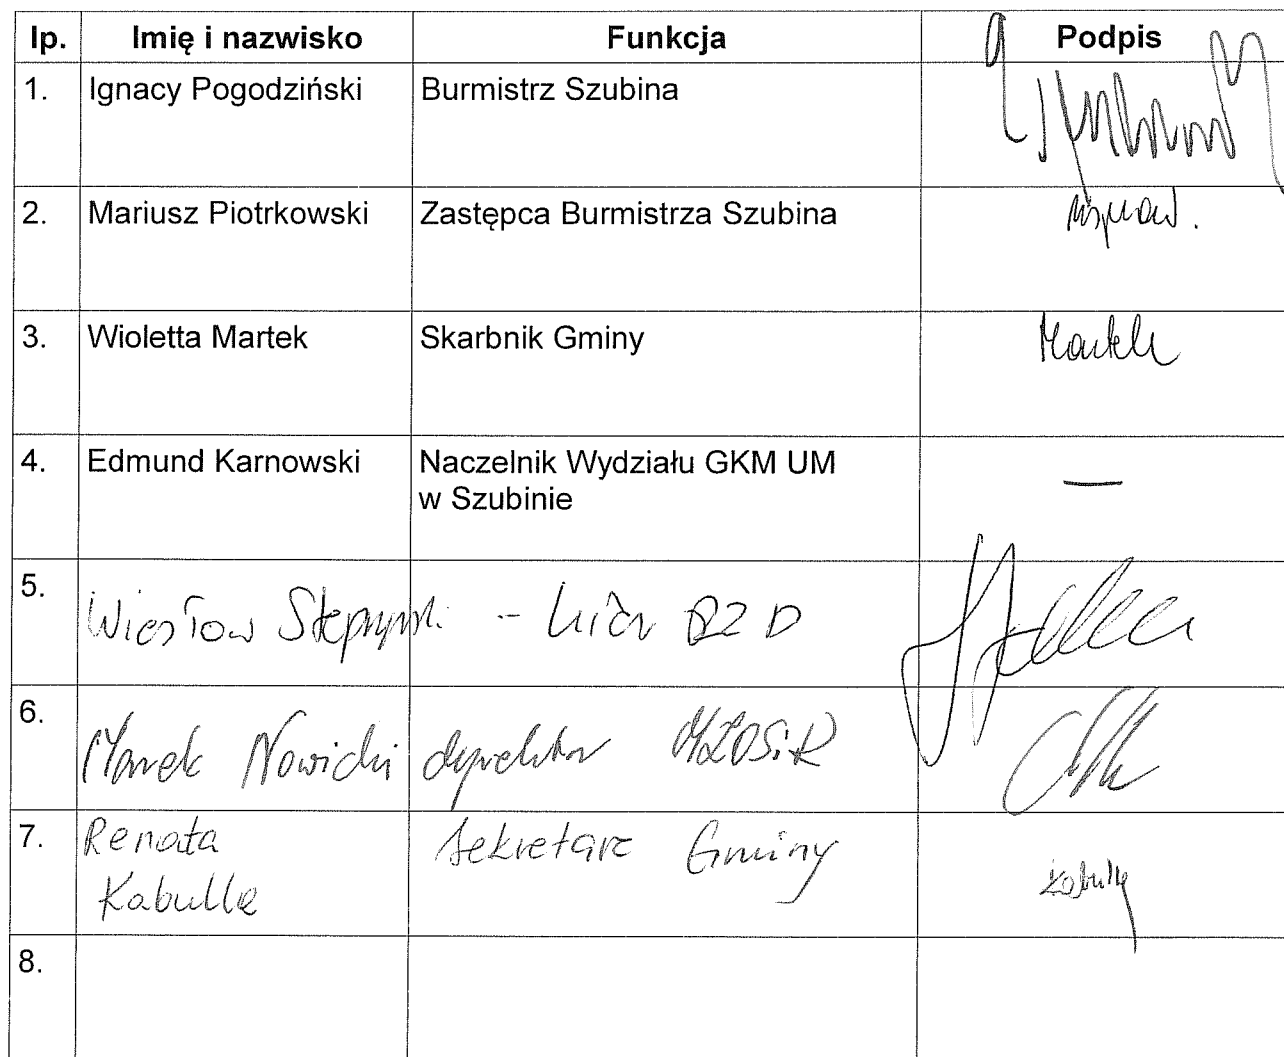 lp. Imię i nazwisko Funkcja Podpis
1. Ignacy Pogodziński Burmistrz Szubina
2. Mariusz Piotrkowski Zastępca Burmistrza Szubina
3. Wioletta Martek Skarbnik Gminy Martek
4. Edmund Karnowski Naczelnik Wydziału GKM UM
w Szubinie —
5. Wiesław - D
6. Marek Nowicki dyrektor MLOSiR
7. Renata sekretarz Gminy
Kabulke
8.